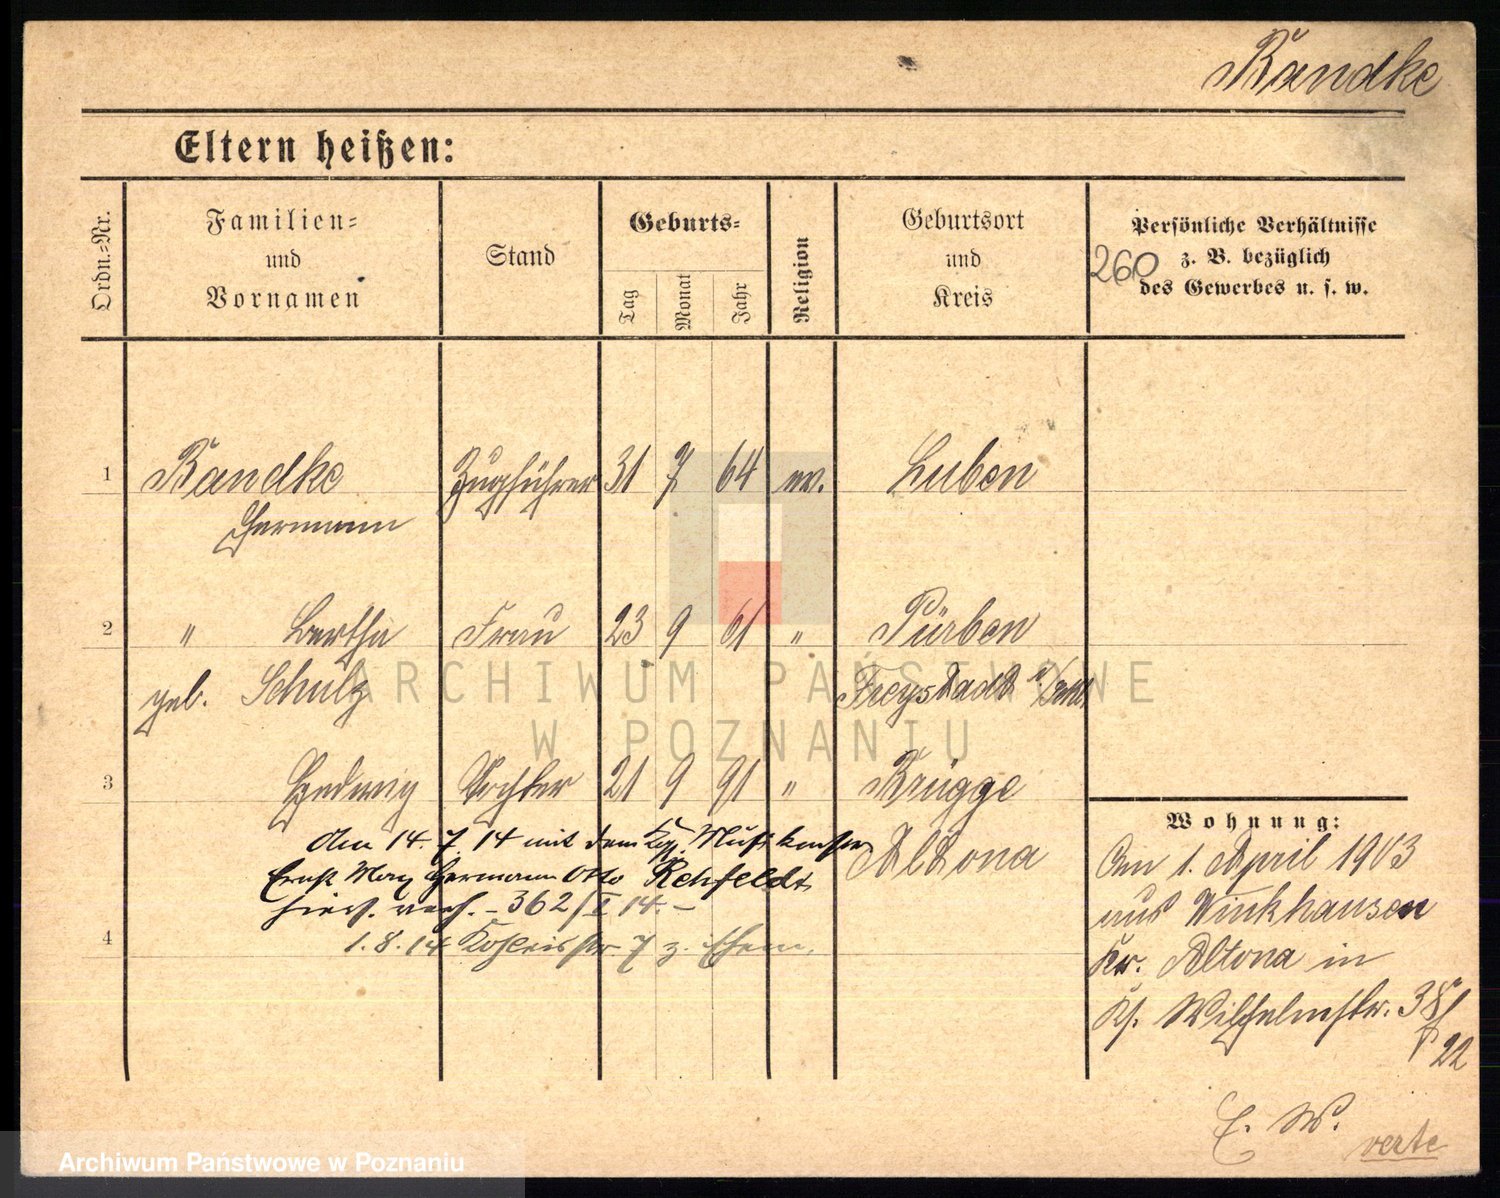 Bandke
Eltern heißen:
Ordn.-Nr.
Familien-
und
Vornamen
Stand
Geburts-
Tag
Monat
Jahr
Religion
Geburtsort
und
Kreis
Persönliche Verhältnisse
z. B. bezüglich
des Gewerbes u. s. w.
260
1 Bandke Zugführer 31 7 64 ev. Luben
Hermann
2 " Bertha Frau 23 9 61 " Pürben
geb. Schulz Freystadt
3 Hedwig Tochter 21 9 91 " Brügge
Altona
Am 14. 7. 14 mit dem Kgl.
Ernst Max Hermann Otto Rehfeldt
hier verh. - 362/I 14. -
4 1. 8. 14 7 z. Ehem.
Wohnung:
Am 1. April 1903
aus Winkhausen
Kr. Altona in
Wilhelmstr. 38
22
E. W.
verte
ARCHIWUM PAŃSTWOWE
W POZNANIU
Archiwum Państwowe w Poznaniu